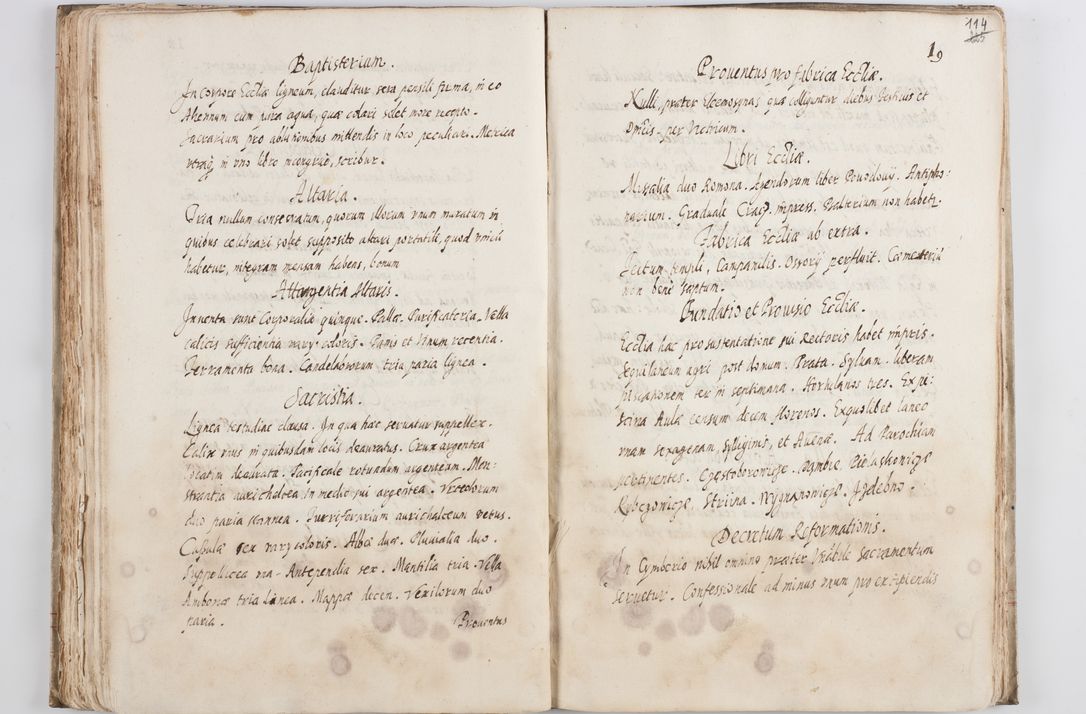 Baptisterium.
In corpore Ecclīæ ligneum, clauditur sera pensili firma, in eo
Ahenum cum pura aqua, quæ colari solet more recepto.
Sacrarium pro ablutionibus mittendis in loco peculiari. Metrica
in vno libro scribitur.
Altaria.
Tria nullum consecratum, quorum illorum vnum muratum in
quibus celebrari solet supposito altari portatili, quod vnicũ
habetur, integram mensam habens, bonum
Attinentia Altaris.
Inuenta sunt Corporalia quinque. Pallæ. Purificatoria. Vella
calicis sufficientia varij coloris. Panis et Vinum recentia.
Ferramenta bona. Candelabrorum tria paria lignea.
Sacristia.
Lignea testudine clausa. In qua hæc seruatur suppellex.
Calix vnus in quibusdam locis deauratus. Crux argentea
deaurata. Pacificale rotundum argenteum. Mon:
strantia aurichalcea in medio sui argentea. Vrceolorum
duo paria stannea. Turriferarium aurichalceum vetus.
Casulæ sex varij coloris. Albæ duæ. Pluuialia duo.
Suppelicea Antependia sex. Mantilia tria. Vela
Ambonæ tria linea. Mappæ decem. Vexilorum duo
paria.
Prouentus
114
19
Prouentus pro fabrica Ecclīæ.
Nulli, præter Eleemosynas quæ colliguntur diebus festiuis et
per Vitricum.
Libri Ecclīæ.
Missalia duo Romana. Agendorum liber Antipho:
narium. Graduale Crac. impress. Psalterium non habetr.
Fabrica Ecclīæ ab extra.
Tectum templi, Campanilis. Ossorij perfluit. Cœmeteriũ
non bene septum.
Fundatio et Prouisio Ecclīæ.
Ecclīa hæc pro sustentatione sui Rectoris habet impris.
agri post domum. Prata. Syluam. liberam
piscationem ter in septimana. Hortulanos tres. Ex pi:
scina Aulæ censum decem florenos. Ex quolibet laneo
vnam sexagenam, syliginis, et Auenæ. Ad Parochiam
pertinentes. Dymbræ. Bielaskouice
Strisna. Wygnanowice.
Decretum Reformationis.
In Cymborio nihil omnino præter Vnabile Sacramentum
seruetur. Confessionale ad minus vnum pro excipiendis